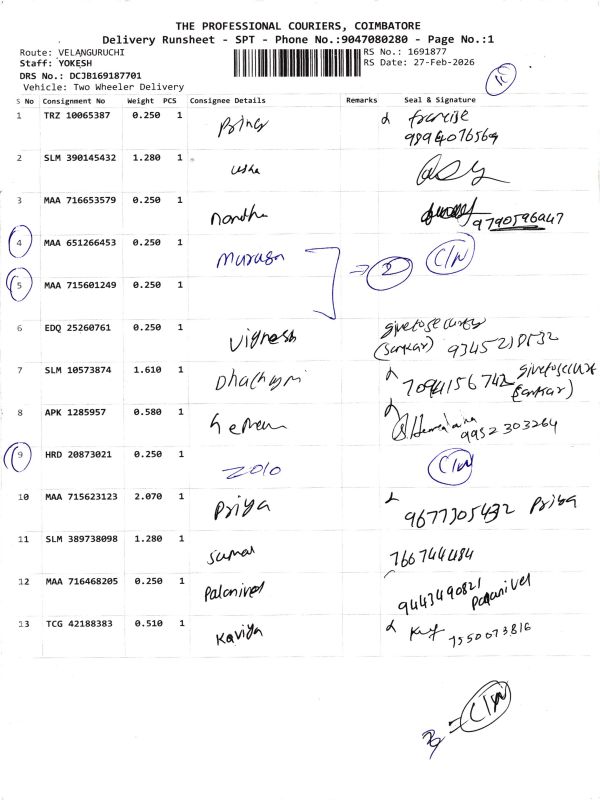 THE PROFESSIONAL COURIERS, COIMBATORE
Delivery Runsheet - SPT - Phone No.:9047080280 - Page No.:1
Route: VELANGURUCHI
RS No.: 1691877
Staff: YOKESH
RS Date: 27-Feb-2026
DRS No.: DCJB169187701
Vehicle: Two Wheeler Delivery
S No Consignment No Weight PCS Consignee Details Remarks Seal & Signature
1 TRZ 10065387 0.250 1
2 SLM 390145432 1.280 1 usha
3 MAA 716653579 0.250 1 nandha
4 MAA 651266453 0.250 1 murugan 2 C/N
5 MAA 715601249 0.250 1
6 EDQ 25260761 0.250 1 Vignesh (Sankar)
7 SLM 10573874 1.610 1 7094156742 (Sankar)
8 APK 1285957 0.580 1 9952303264
9 HRD 20873021 0.250 1 ZOLO C/N
10 MAA 715623123 2.070 1 Priya 9677305432 Priya
11 SLM 389738098 1.280 1
12 MAA 716468205 0.250 1 Palanivel 9443490821 Palanivel
13 TCG 42188383 0.510 1 Kaviya 7550073816
C/N